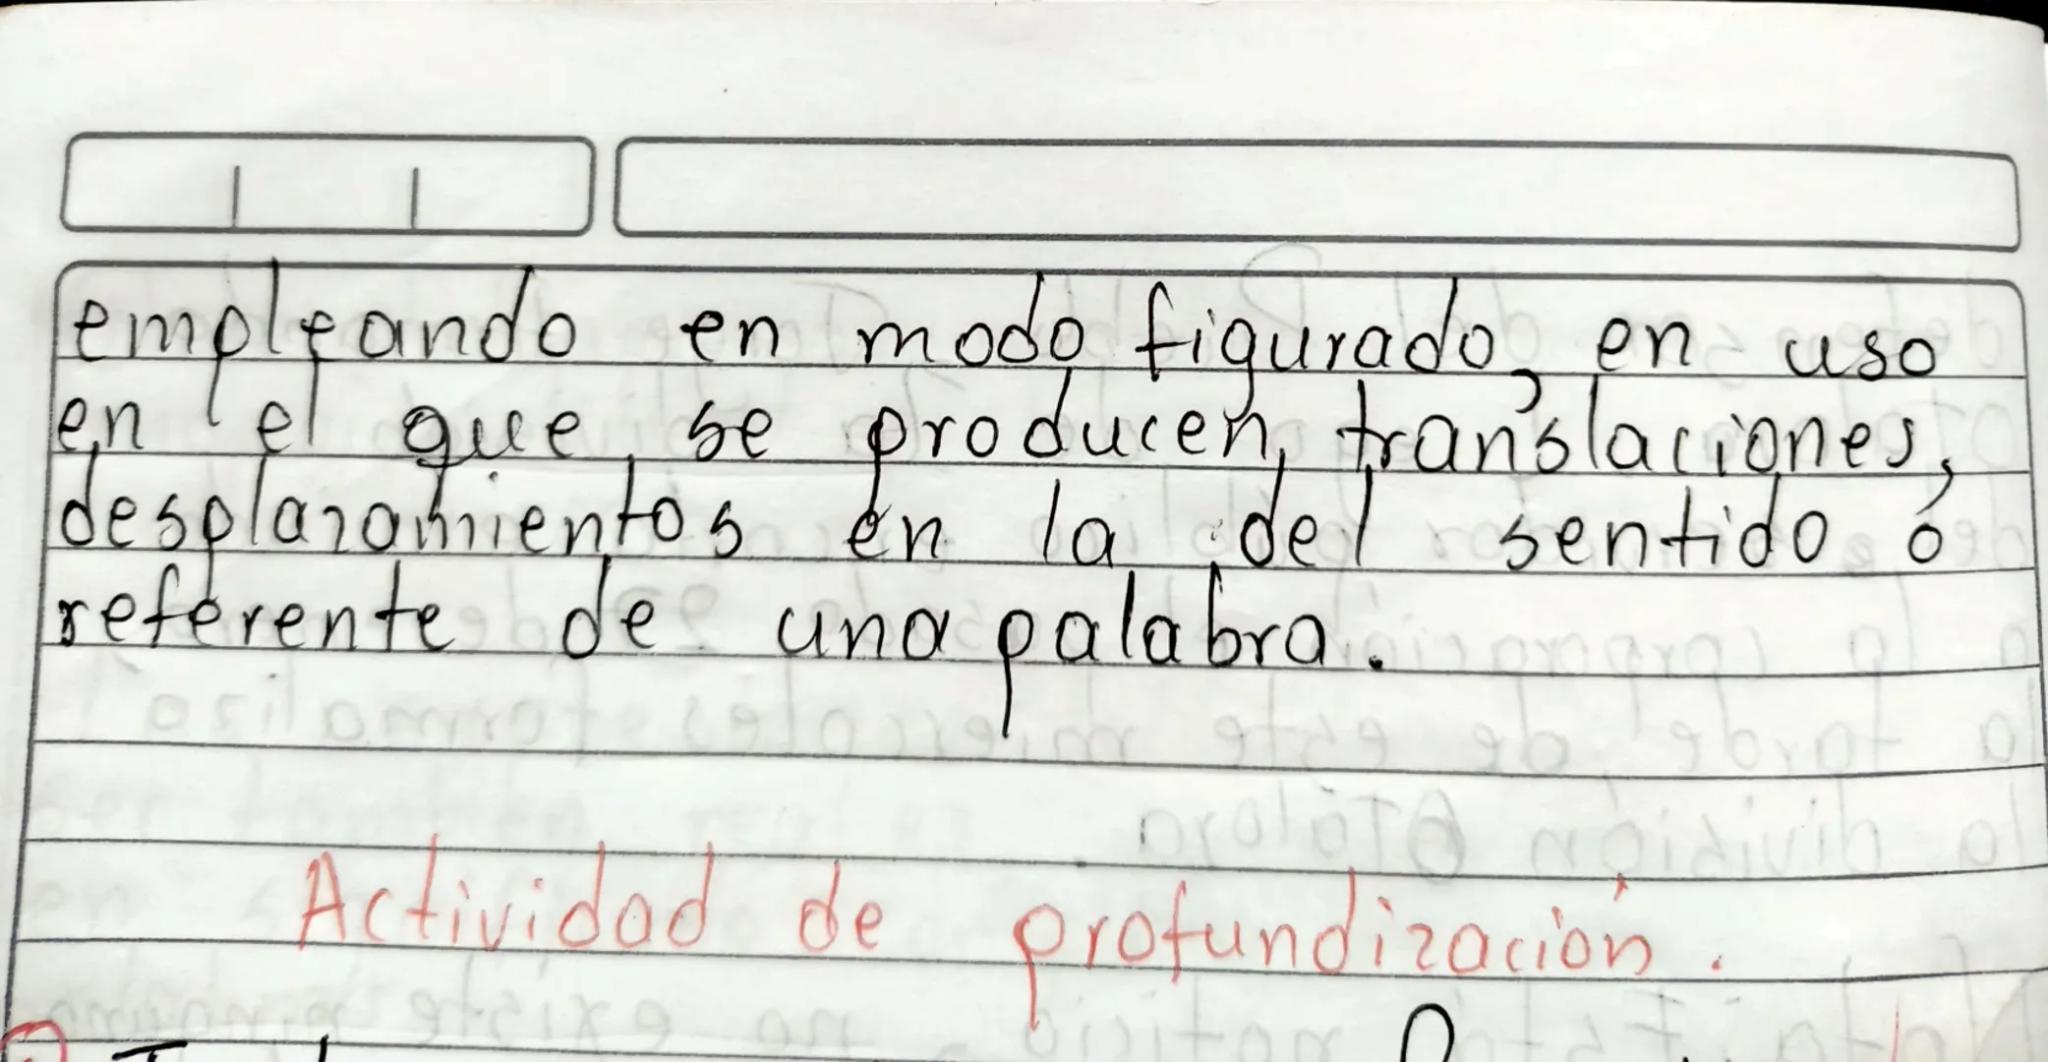 empleando en modo figurado, en uso
en el que se producen translaciones,
desplazamientos en la del sentido ó
referente de una palabra.
Actividad de profundización.